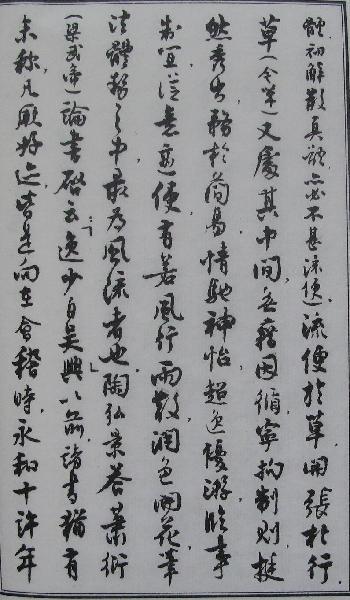 體初解散真體,亦必不甚流便)流便於草,開張於行,
草(今草)又處其中間,無藉因循,寧拘制則,挺
然秀出,務於簡易,情馳神怡,超逸優游,臨事
制宜,從意適便,有若風行雨散,潤色開花,筆
法體勢之中最為風流者也」陶弘景答蕭衍
(梁武帝)論書啟云:「逸少自吳興以前,諸書猶有
未稱,凡厥好迹,皆是向在會稽時,永和十許年